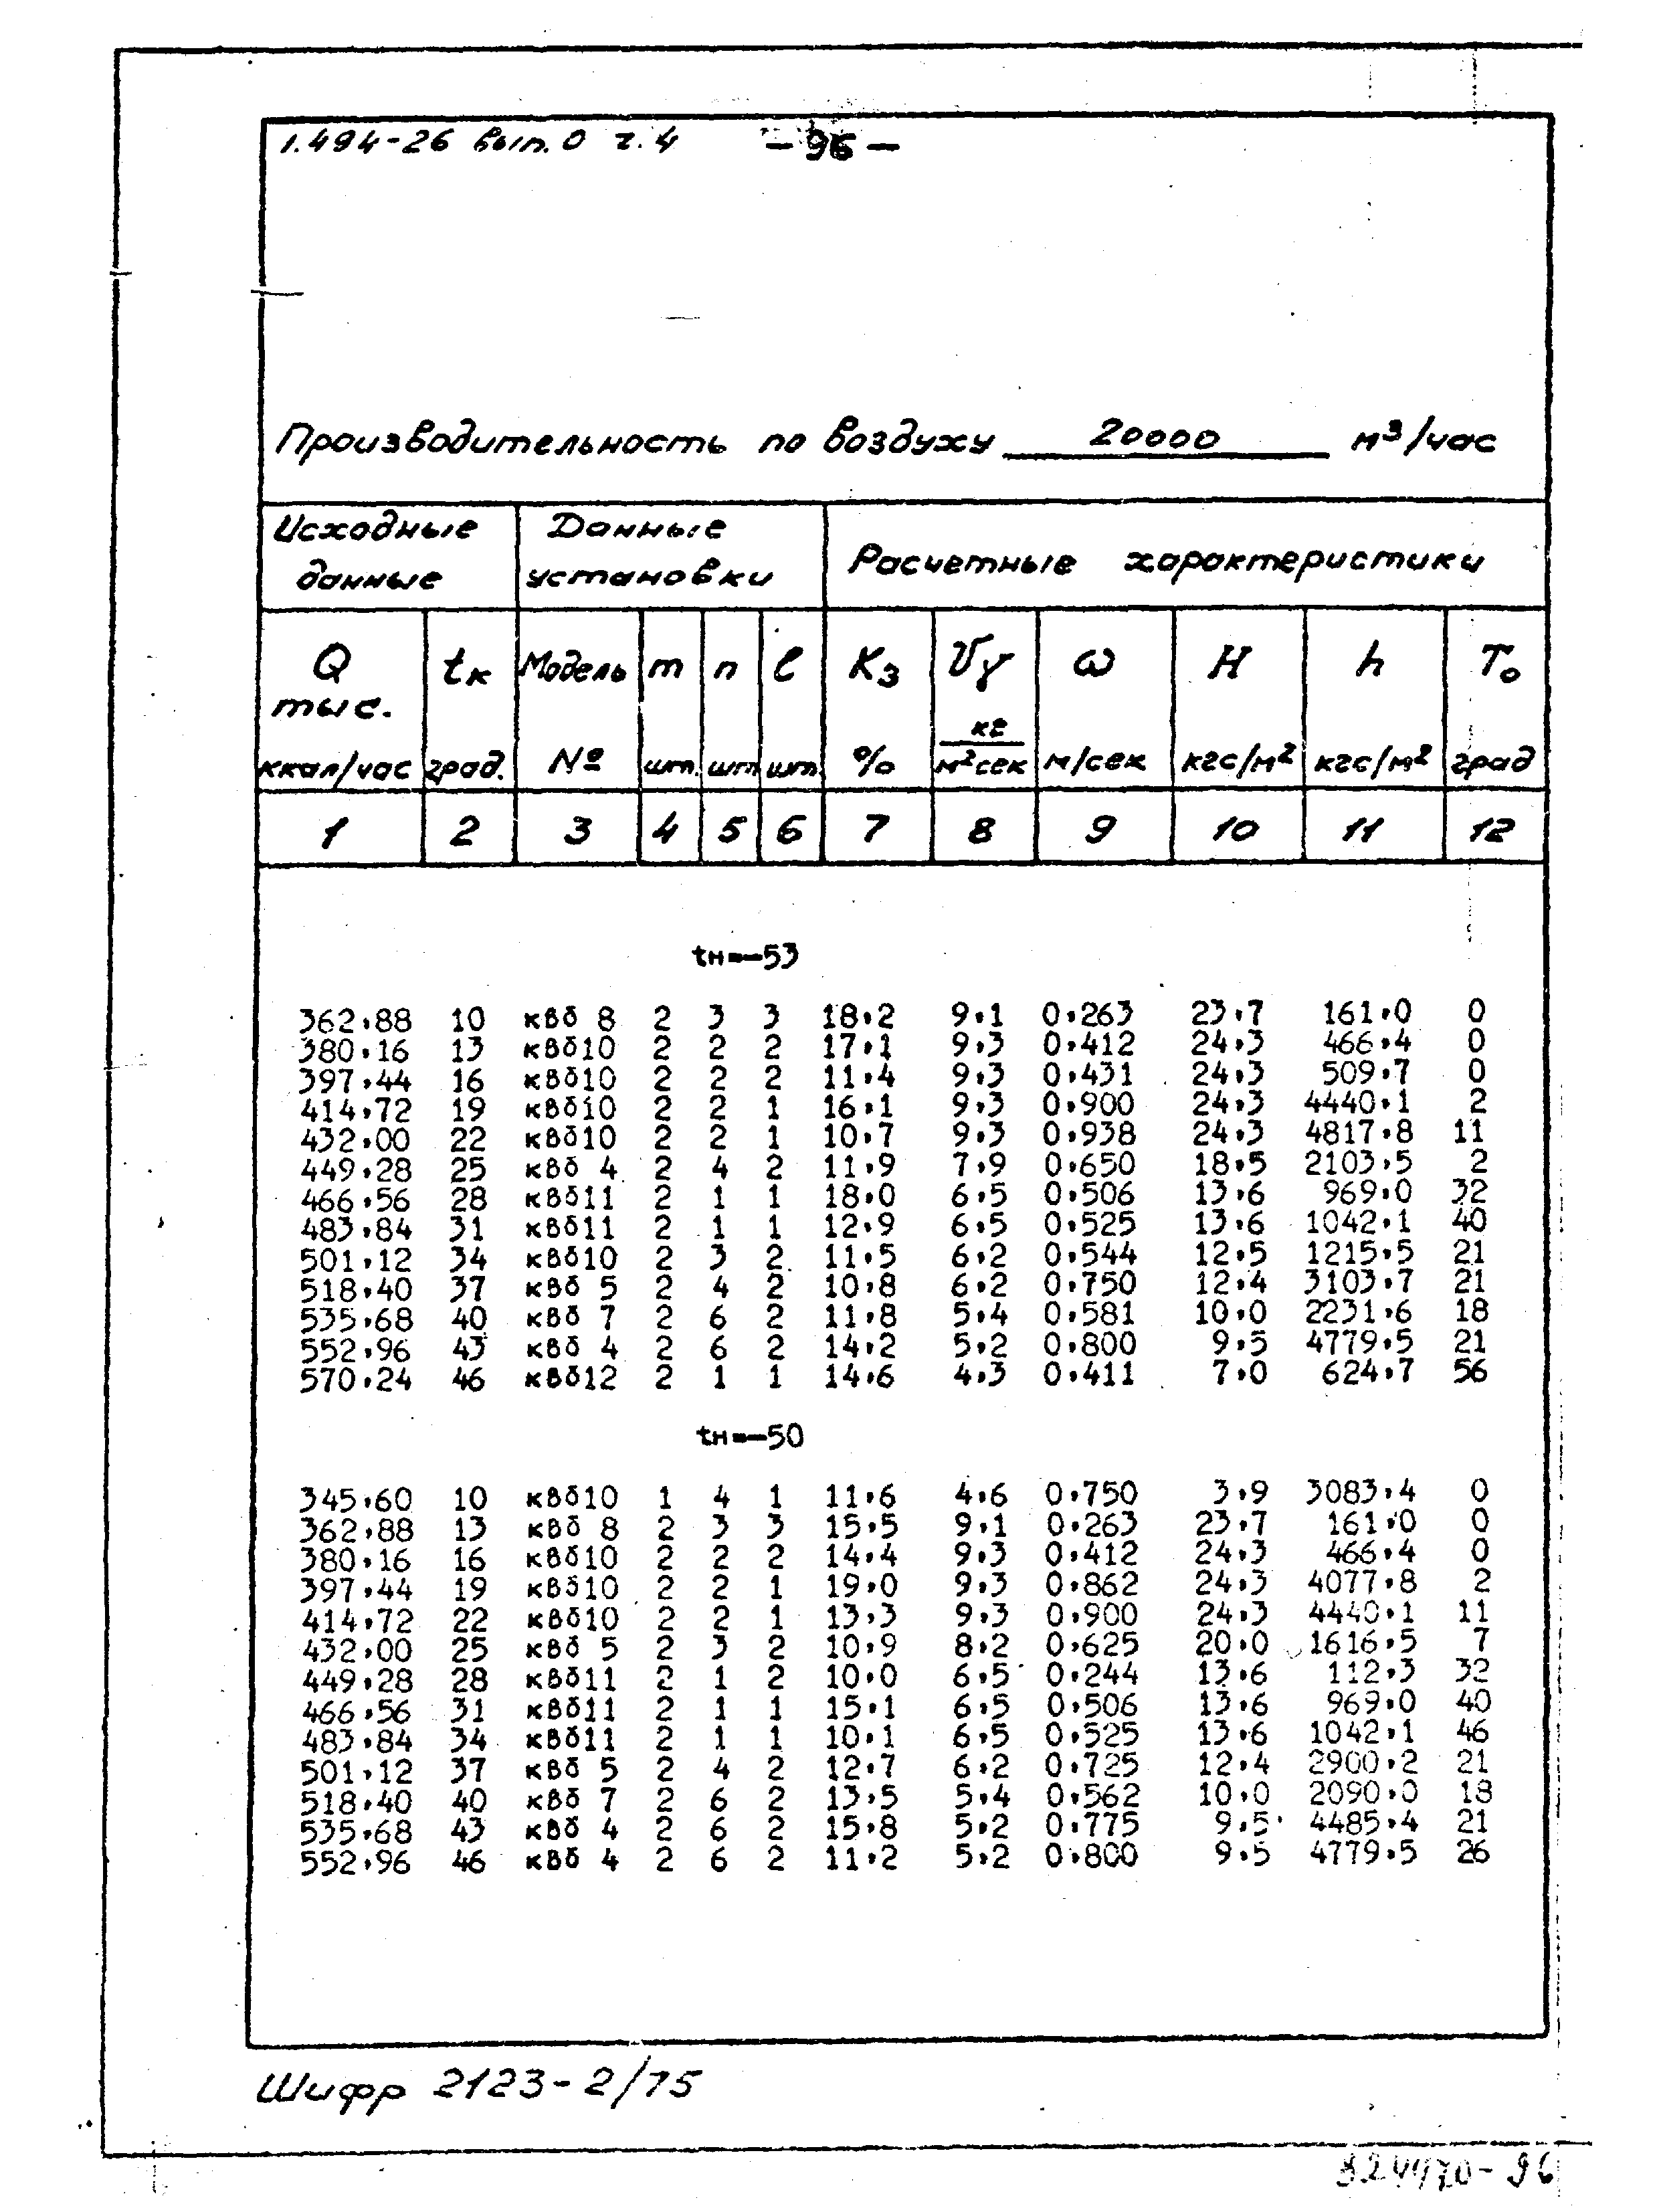 1.494-26 вып.0 ч.4 -96-
Производительность по воздуху 20000 м³/час
Исходные данные Данные установки Расчетные характеристики
Q тыс. ккал/час tк град. Модель № m шт. n шт. l шт. Kз % Vγ кг/м²сек ω м/сек H кгс/м² h кгс/м² To град
1 2 3 4 5 6 7 8 9 10 11 12
tн=-53
362.88 10 квб 8 2 3 3 18.2 9.1 0.263 23.7 161.0 0
380.16 13 квб10 2 2 2 17.1 9.3 0.412 24.3 466.4 0
397.44 16 квб10 2 2 2 11.4 9.3 0.431 24.3 509.7 0
414.72 19 квб10 2 2 1 16.1 9.3 0.900 24.3 4440.1 2
432.00 22 квб10 2 2 1 10.7 9.3 0.938 24.3 4817.8 11
449.28 25 квб 4 2 4 2 11.9 7.9 0.650 18.5 2103.5 2
466.56 28 квб11 2 1 1 18.0 6.5 0.506 13.6 969.0 32
483.84 31 квб11 2 1 1 12.9 6.5 0.525 13.6 1042.1 40
501.12 34 квб10 2 3 2 11.5 6.2 0.544 12.5 1215.5 21
518.40 37 квб 5 2 4 2 10.8 6.2 0.750 12.4 3103.7 21
535.68 40 квб 7 2 6 2 11.8 5.4 0.581 10.0 2231.6 18
552.96 43 квб 4 2 6 2 14.2 5.2 0.800 9.5 4779.5 21
570.24 46 квб12 2 1 1 14.6 4.3 0.411 7.0 624.7 56
tн=-50
345.60 10 квб10 1 4 1 11.6 4.6 0.750 3.9 3083.4 0
362.88 13 квб 8 2 3 3 15.5 9.1 0.263 23.7 161.0 0
380.16 16 квб10 2 2 2 14.4 9.3 0.412 24.3 466.4 0
397.44 19 квб10 2 2 1 19.0 9.3 0.862 24.3 4077.8 2
414.72 22 квб10 2 2 1 13.3 9.3 0.900 24.3 4440.1 11
432.00 25 квб 5 2 3 2 10.9 8.2 0.625 20.0 1616.5 7
449.28 28 квб11 2 1 2 10.0 6.5 0.244 13.6 112.3 32
466.56 31 квб11 2 1 1 15.1 6.5 0.506 13.6 969.0 40
483.84 34 квб11 2 1 1 10.1 6.5 0.525 13.6 1042.1 46
501.12 37 квб 5 2 4 2 12.7 6.2 0.725 12.4 2900.2 21
518.40 40 квб 7 2 6 2 13.5 5.4 0.562 10.0 2090.0 18
535.68 43 квб 4 2 6 2 15.8 5.2 0.775 9.5 4485.4 21
552.96 46 квб 4 2 6 2 11.2 5.2 0.800 9.5 4779.5 26
Шифр 2123-2/75